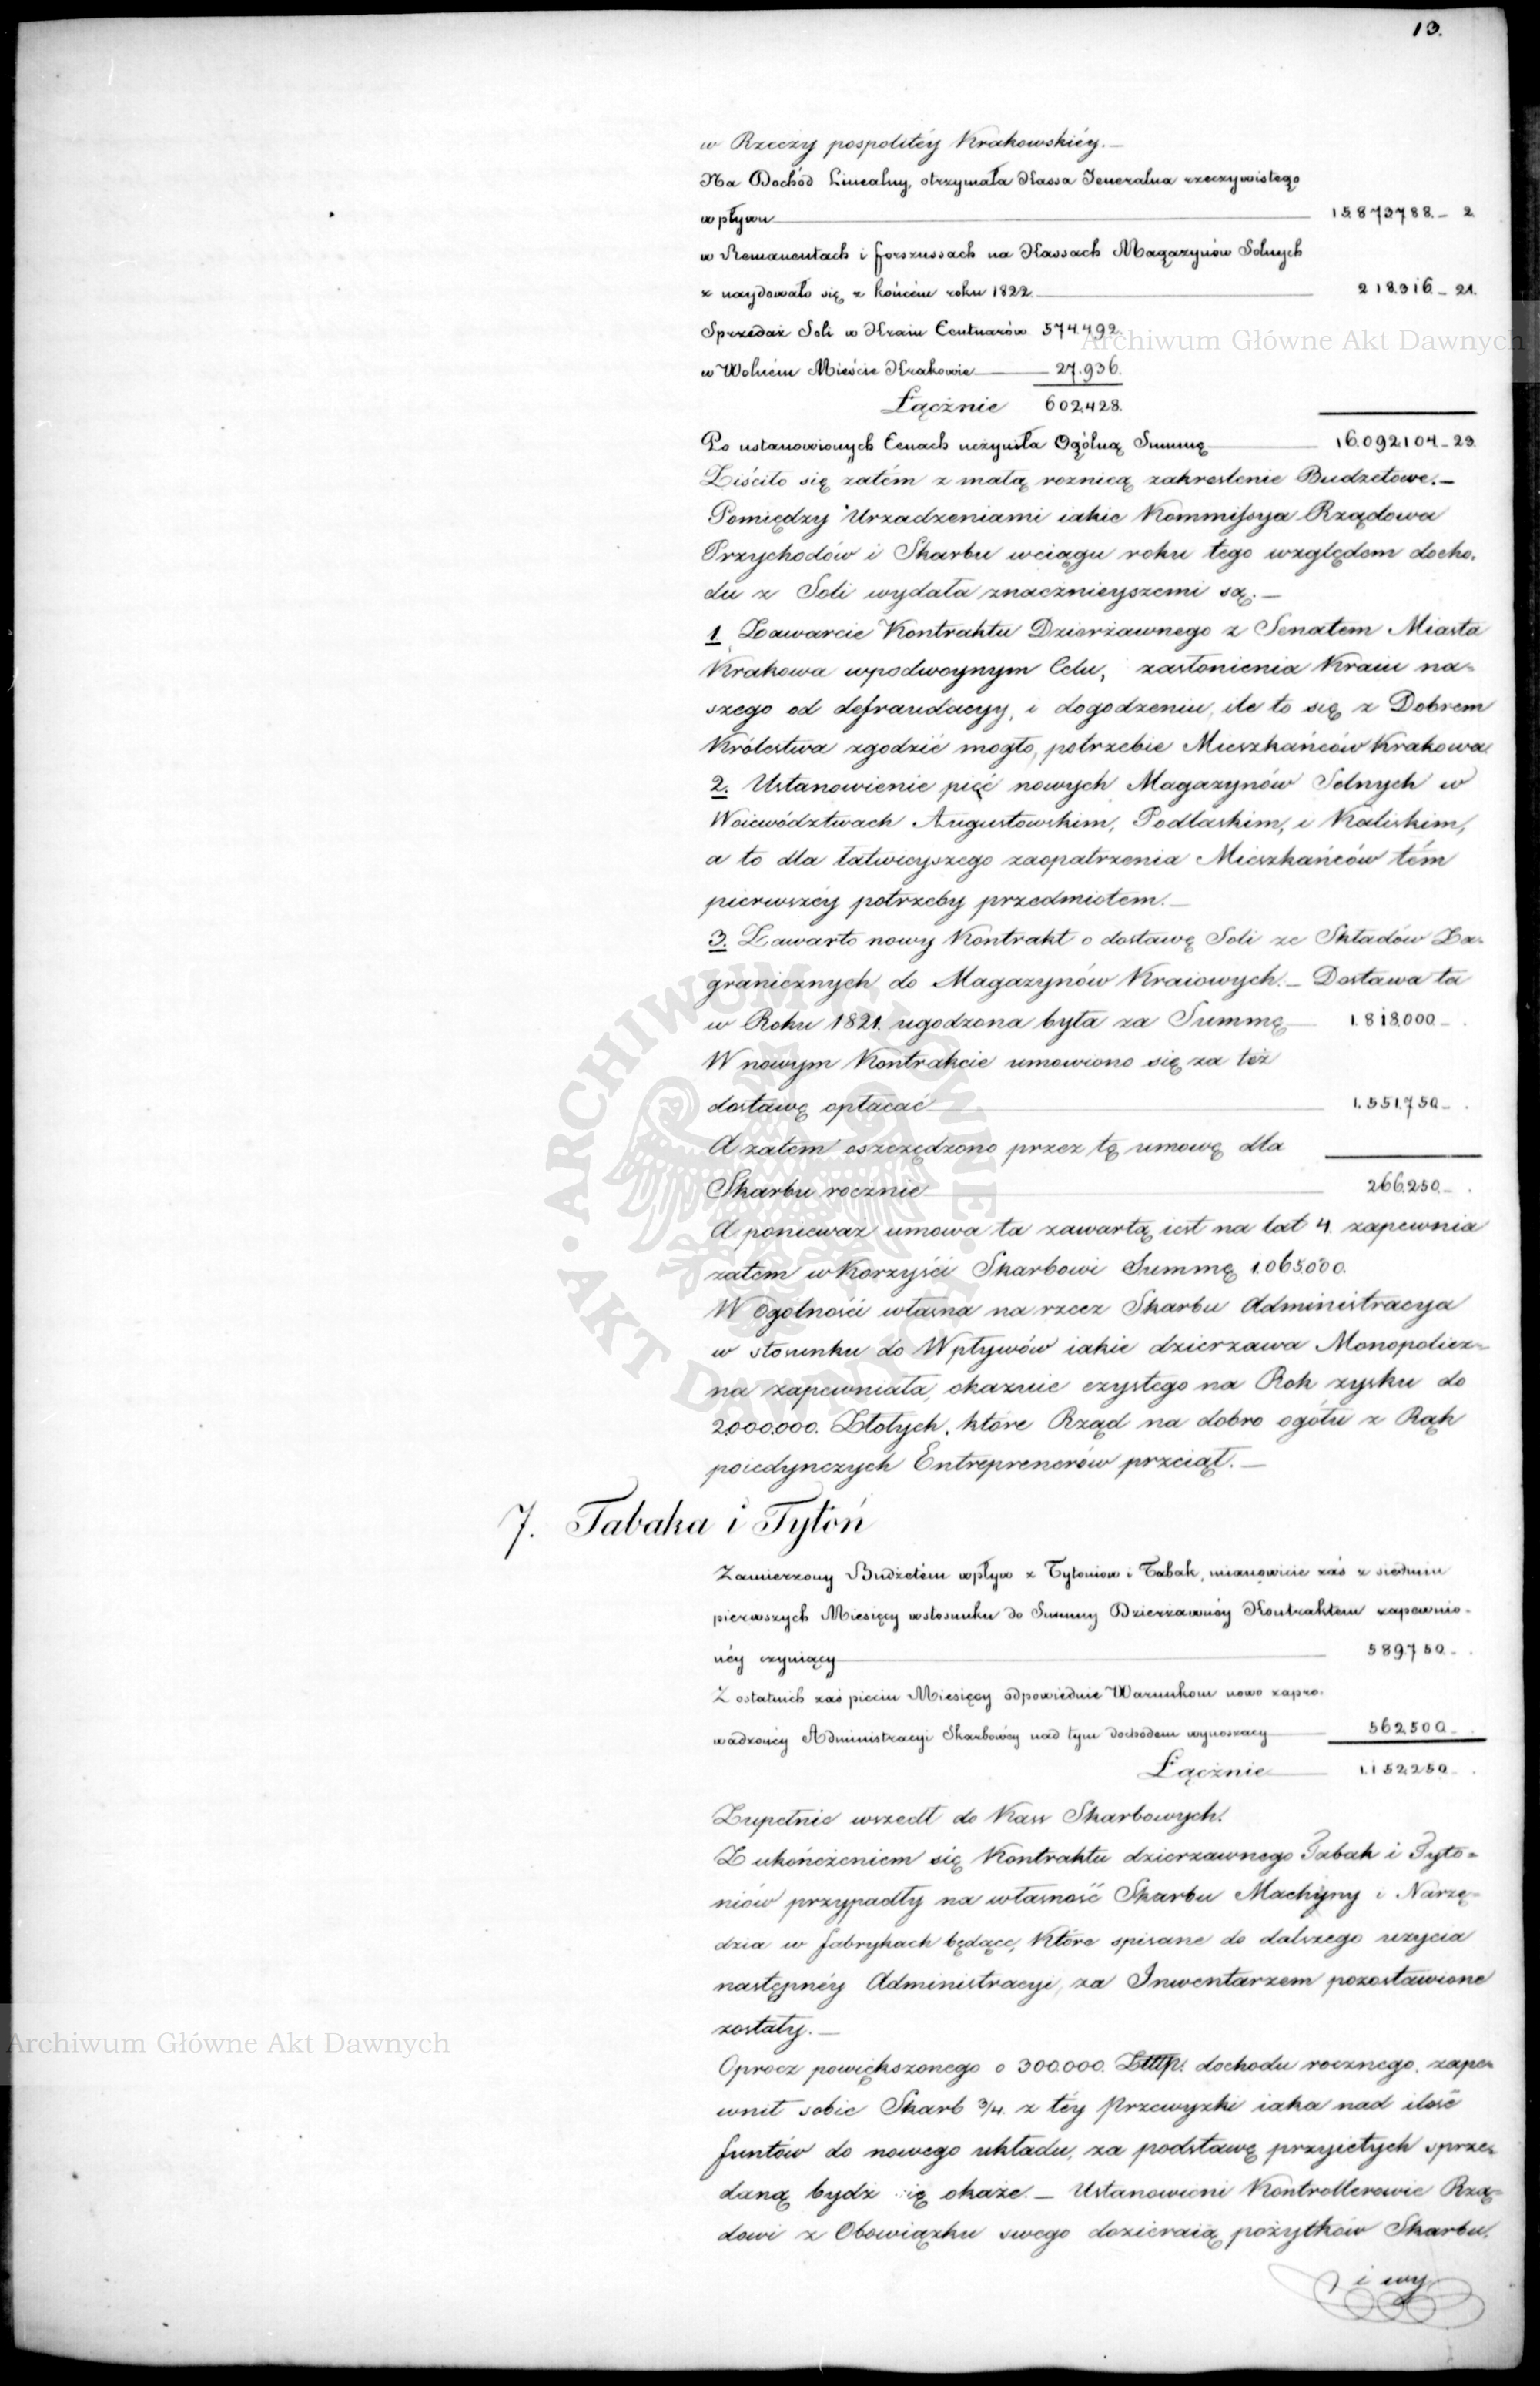 13.
w Rzeczy pospolitéy Krakowskiéy.—
Na Dochód Linealny, otrzymała Kassa Jeneralna rzeczywistego
wpływu 15.873788.— 2.
w Remanentach i forszussach na Kassach Magazynów Solnych
znaydowało się z końcém roku 1822. 218.316— 21.
Sprzedaż Soli w Kraiu Centnarów 574.492.
w Wolném Mieście Krakowie 27.936.
Łącznie 602428.
Po ustanowionych Cenach uczyniła Ogólną Summę 16.092104—23.
Ziściło się zatém z małą roznicą zakreslenie Budzetowe.—
Pomiędzy Urzadzeniami iakie Kommissya Rządowa
Przychodów i Skarbu wciągu roku tego względem docho-
du z Soli wydała znacznieyszemi są.—
1. Zawarcie Kontraktu Dzierżawnego z Senatem Miasta
Krakowa wpodwoynym Celu, zasłonienia Kraiu na-
szego od defraudacyy, i dogodzeniu, ile to się z Dobrem
Królestwa zgodzić mogło, potrzebie Mieszkańców Krakowa
2. Ustanowienie pięć nowych Magazynów Solnych w
Woiewództwach Augustowskim, Podlaskim, i Kaliskim,
a to dla łatwieyszego zaopatrzenia Mieszkańców tém
pierwszéy potrzeby przedmiotem.—
3. Zawarto nowy Kontrakt o dostawę Soli ze Składów Za-
granicznych do Magazynów Kraiowych.— Dostawa ta
w Roku 1821. ugodzona była za Summę 1.818.000—.
W nowym Kontrakcie umowiono się za też
dostawę opłacać 1.551.750—.
A zatem oszczędzono przez tę umowę dla
Skarbu rocznie 266.250—.
A poniewaz umowa ta zawartą iest na lat 4. zapewnia
zatem w Korzyści Skarbowi Summę 1.065000.
W Ogólności własna na rzecz Skarbu Administracya
w stosunku do Wpływów iakie dzierzawa Monopolicz-
na zapewniała, okazuie czystego na Rok zysku do
2000.000. Złotych, które Rząd na dobro ogółu z Rąk
poiedynczych Entreprenerów przeciął.—
7. Tabaka i Tytoń
Zamierzony Budżetém wpływ z Tytoniow i Tabak, mianowicie zaś z siedmiu
pierwszych Miesięcy wstosunku do Summy Dzierżawnéy Kontraktem zapewnio-
néy czyniący 589.750—.
Z ostatnich zaś pieciu Miesięcy odpowiednie Warunkom nowo zapro-
wadzonéy Administracyi Skarbowéy nad tym dochodem wynoszacy 562500—.
Łącznie 1.152.250—.
Zupełnie wszedł do Kass Skarbowych.
Z ukończeniem się Kontraktu dzierzawnego Tabak i Tyto-
niów przypadły na własność Skarbu Machyny i Narzę-
dzia w fabrykach będące, Które spisane do dalszego uzycia
następnéy Administracyi, za Inwentarzem pozostawione
zostały.—
Oprocz powiększonego o 300.000. dochodu rocznego, zape-
wnił sobie Skarb 3/4. z téy Przewyzki iaka nad ilość
funtów do nowego układu, za podstawę przyietych sprze-
daną bydź się okaże.— Ustanowieni Kontrollerowie Rzą-
dowi z Obowiązku swego dozieraią pożytków Skarbu.
i wy
Archiwum Główne Akt Dawnych
Archiwum Główne Akt Dawnych
ARCHIWUM GŁÓWNE AKT DAWNYCH